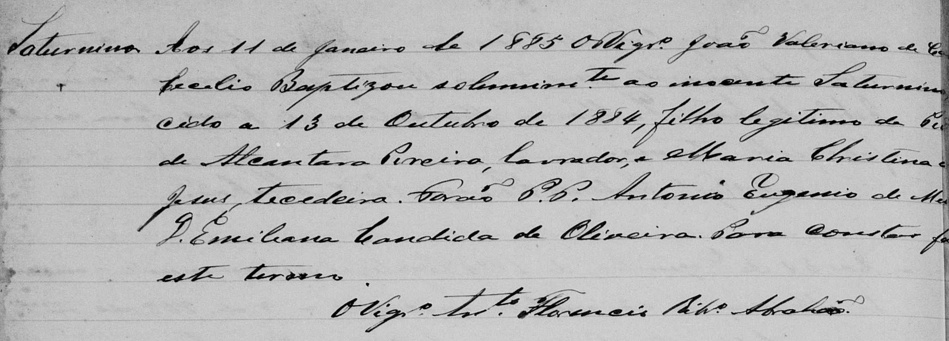 Saturnino Aos 11 de Janeiro de 1885 o Vigr.º João Valeriano de
Cecelio Baptizou solemnim.te ao inocente Saturnino
cido a 13 de Outubro de 1884, filho legitimo de
de Alcantara Pereira, lavrador, e Maria Christina
Jesus, tecedeira. Forão P.P. Antonio Eugenio de
D. Emiliana Candida de Oliveira. Para constar
este termo.
O Vigr.º Ant.to Florencio Rib.º Abrahão.